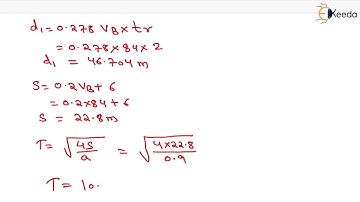 Ekeeda
d₁ = 0.278 VB × tr
= 0.278 × 84 × 2
d₁ = 46.704 m
S = 0.2 VB + 6
= 0.2 × 84 + 6
S = 22.8 m
T = √(4S/a) = √(4×22.8/0.9)
T = 10.